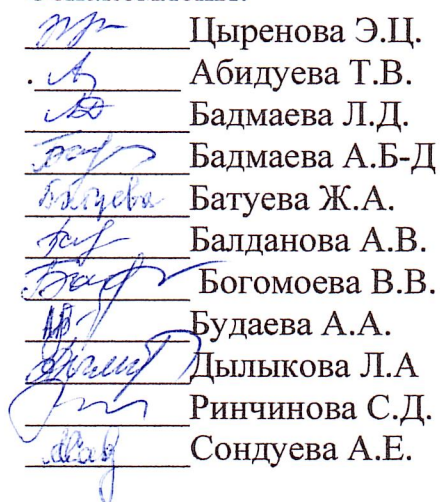 Цыренова Э.Ц.
Абидуева Т.В.
Бадмаева Л.Д.
Бадмаева А.Б-Д
Батуева Батуева Ж.А.
Балданова А.В.
Богомоева В.В.
Будаева А.А.
Дылыкова Л.А
Ринчинова С.Д.
Сондуева А.Е.